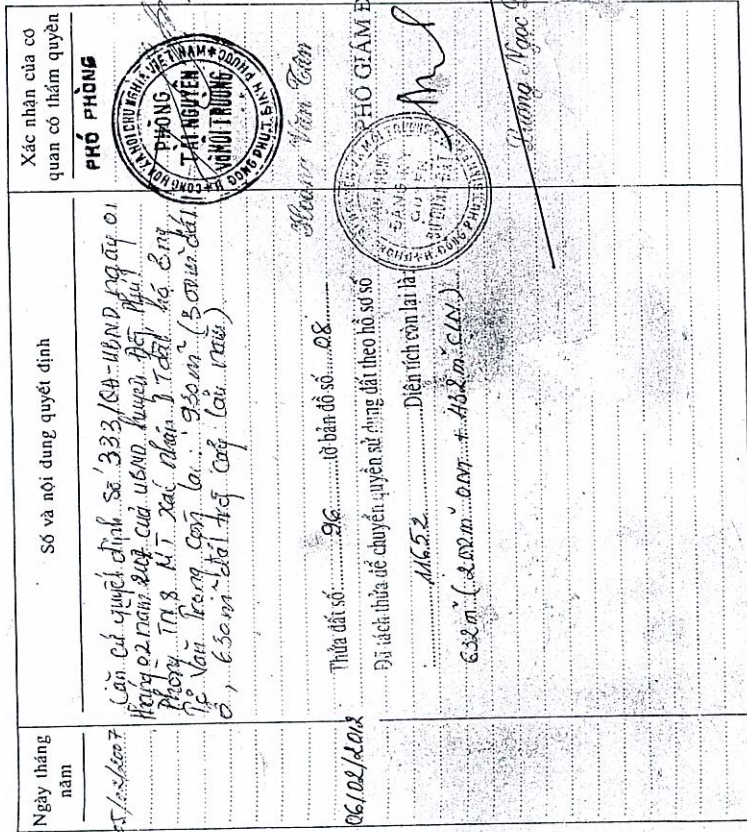 Ngày tháng năm
Số và nội dung quyết định
Xác nhận của cơ quan có thẩm quyền
Căn cứ quyết định số 333/QĐ-UBND ngày 01
tháng 02 năm 2007 của UBND huyện
Phòng TN & MT xác nhận hộ ông
Văn Trong còn lại: 930m² (300m² đất
ở, 630m² đất trồng cây lâu năm)
PHÓ PHÒNG
CỘNG HÒA XÃ HỘI CHỦ NGHĨA VIỆT NAM
PHÒNG
TÀI NGUYÊN
VÀ MÔI TRƯỜNG
Hoàng Văn Tân
06/02/2012
Thửa đất số: 96 tờ bản đồ số 08
Đã tách thửa để chuyển quyền sử dụng đất theo hồ sơ số
Diện tích còn lại là:
632m² (202m² ONT + 432m² CLN)
PHÓ GIÁM Đ
VĂN PHÒNG
ĐĂNG KÝ
QUYỀN
SỬ DỤNG ĐẤT
Ngọc